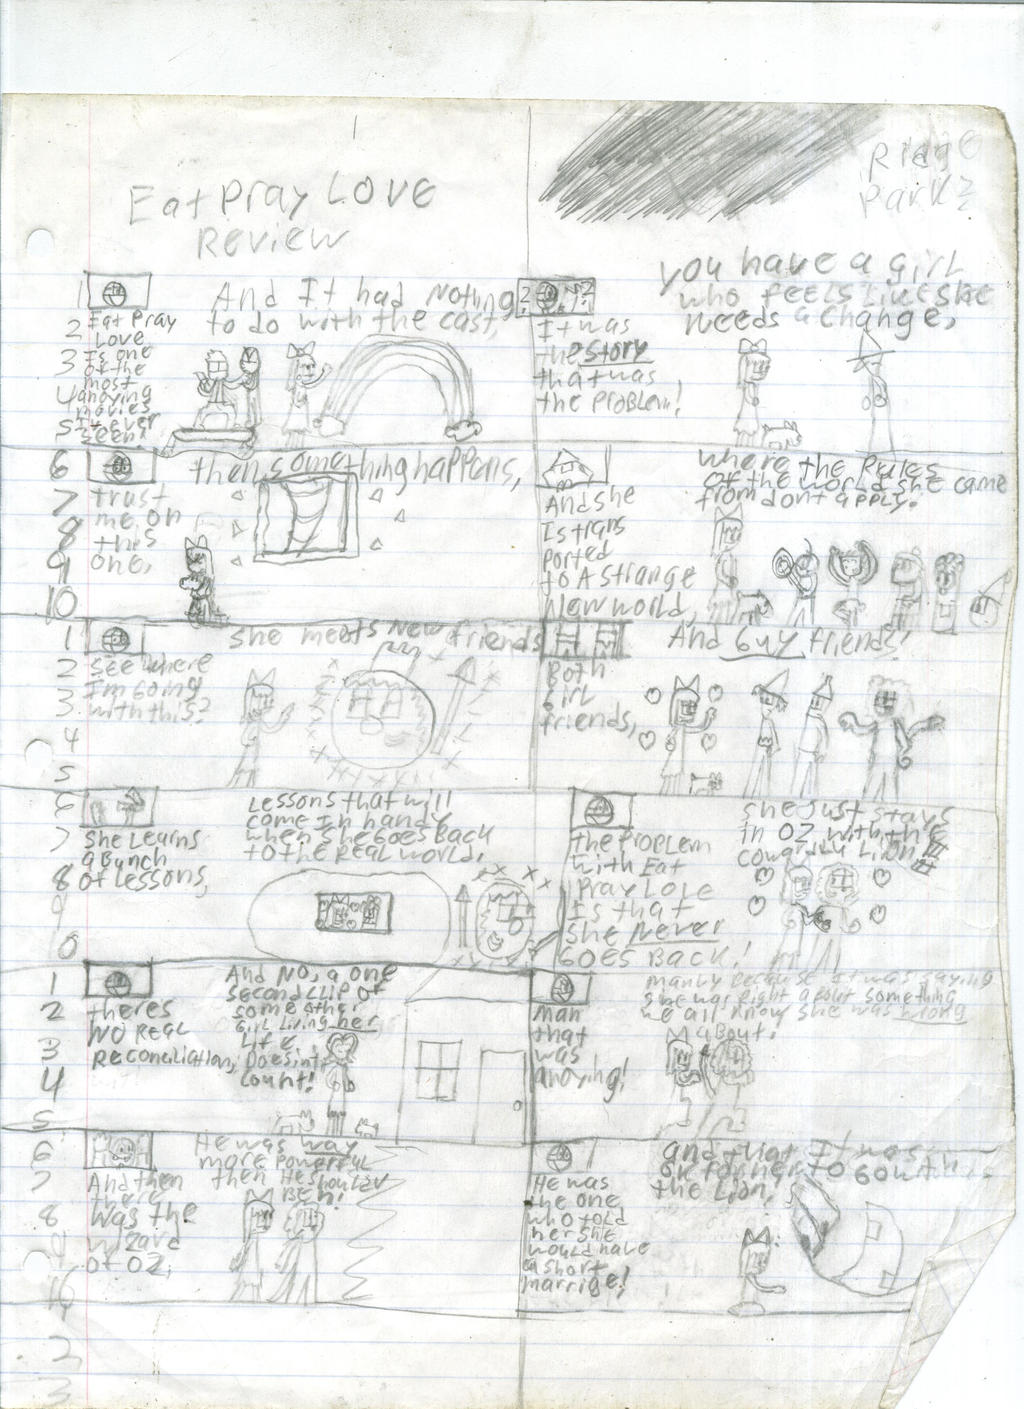 1
Ridge
Park 2
Eat Pray Love
Review
1
2
3
4
5
Eat Pray
Love
Is one
of the
most
anoying
movies
I've ever
seen!
And It had Nothing
to do with the cast,
2
It was
the story
that was
the problem!
You have a girl
who feels like she
needs a change,
6
7
8
9
10
trust
me on
this
one,
then something happens,
And she
Is trans
ported
to A strange
New world,
where the rules
of the world she came
from dont apply!
1
2
3
3
4
5
See where
I'm going
with this?
She meets New friends
Both
girl
friends,
And Guy friends!
6
7
8
9
0
She Learns
a Bunch
of Lessons,
Lessons that will
come In handy
when she Goes Back
to the Real world,
the Problem
with Eat
Pray Love
Is that
she Never
GOES BACK!
She Just stays
In OZ with the
cowardly Lion!!!
1
2
3
4
5
theres
NO REAL
RECONCILIATION,
And NO, a one
second clip of
some other
Girl Living her
Life,
Doesint
count!
Man
that
was
anoying!
Manly Because It was saying
she was Right about something
we all know she was wrong
about!
6
7
8
9
10
2
3
And then
there
was the
wizard
of OZ,
He was way
more Powerful
then He should
Been!
He was
the one
who told
her she
would have
a short
marrige!
and that It was
OK for her to Go with
the Lion,